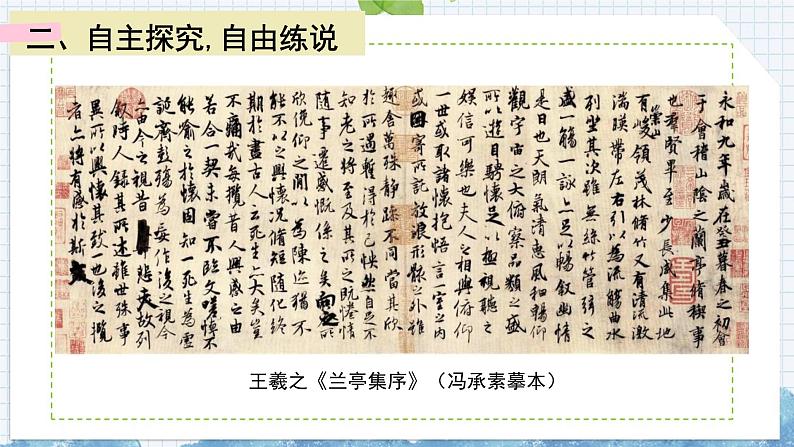 二、自主探究,自由练说
永和九年歲在癸丑暮春之初會
于會稽山陰之蘭亭脩稧事
也群賢畢至少長咸集此地
有崇山峻領茂林脩竹又有清流激
湍暎帶左右引以為流觴曲水
列坐其次雖無絲竹管弦之
盛一觴一詠亦足以暢叙幽情
是日也天朗氣清惠風和暢仰
觀宇宙之大俯察品類之盛
所以遊目騁懷足以極視聽之
娛信可樂也夫人之相與俯仰
一世或取諸懷抱悟言一室之內
或因寄所託放浪形骸之外雖
趣舍萬殊靜躁不同當其欣
於所遇暫得於己怏然自足不
知老之將至及其所之既惓情
隨事遷感慨係之矣向之所
欣俛仰之閒以為陳迹猶不
能不以之興懷況脩短隨化終
期於盡古人云死生亦大矣豈
不痛哉每攬昔人興感之由
若合一契未嘗不臨文嗟悼不
能喻之於懷固知一死生為虛
誕齊彭殤為妄作後之視今
亦由今之視昔悲夫故列
敘時人錄其所述雖世殊事
異所以興懷其致一也後之攬
者亦將有感於斯
王羲之《兰亭集序》（冯承素摹本）